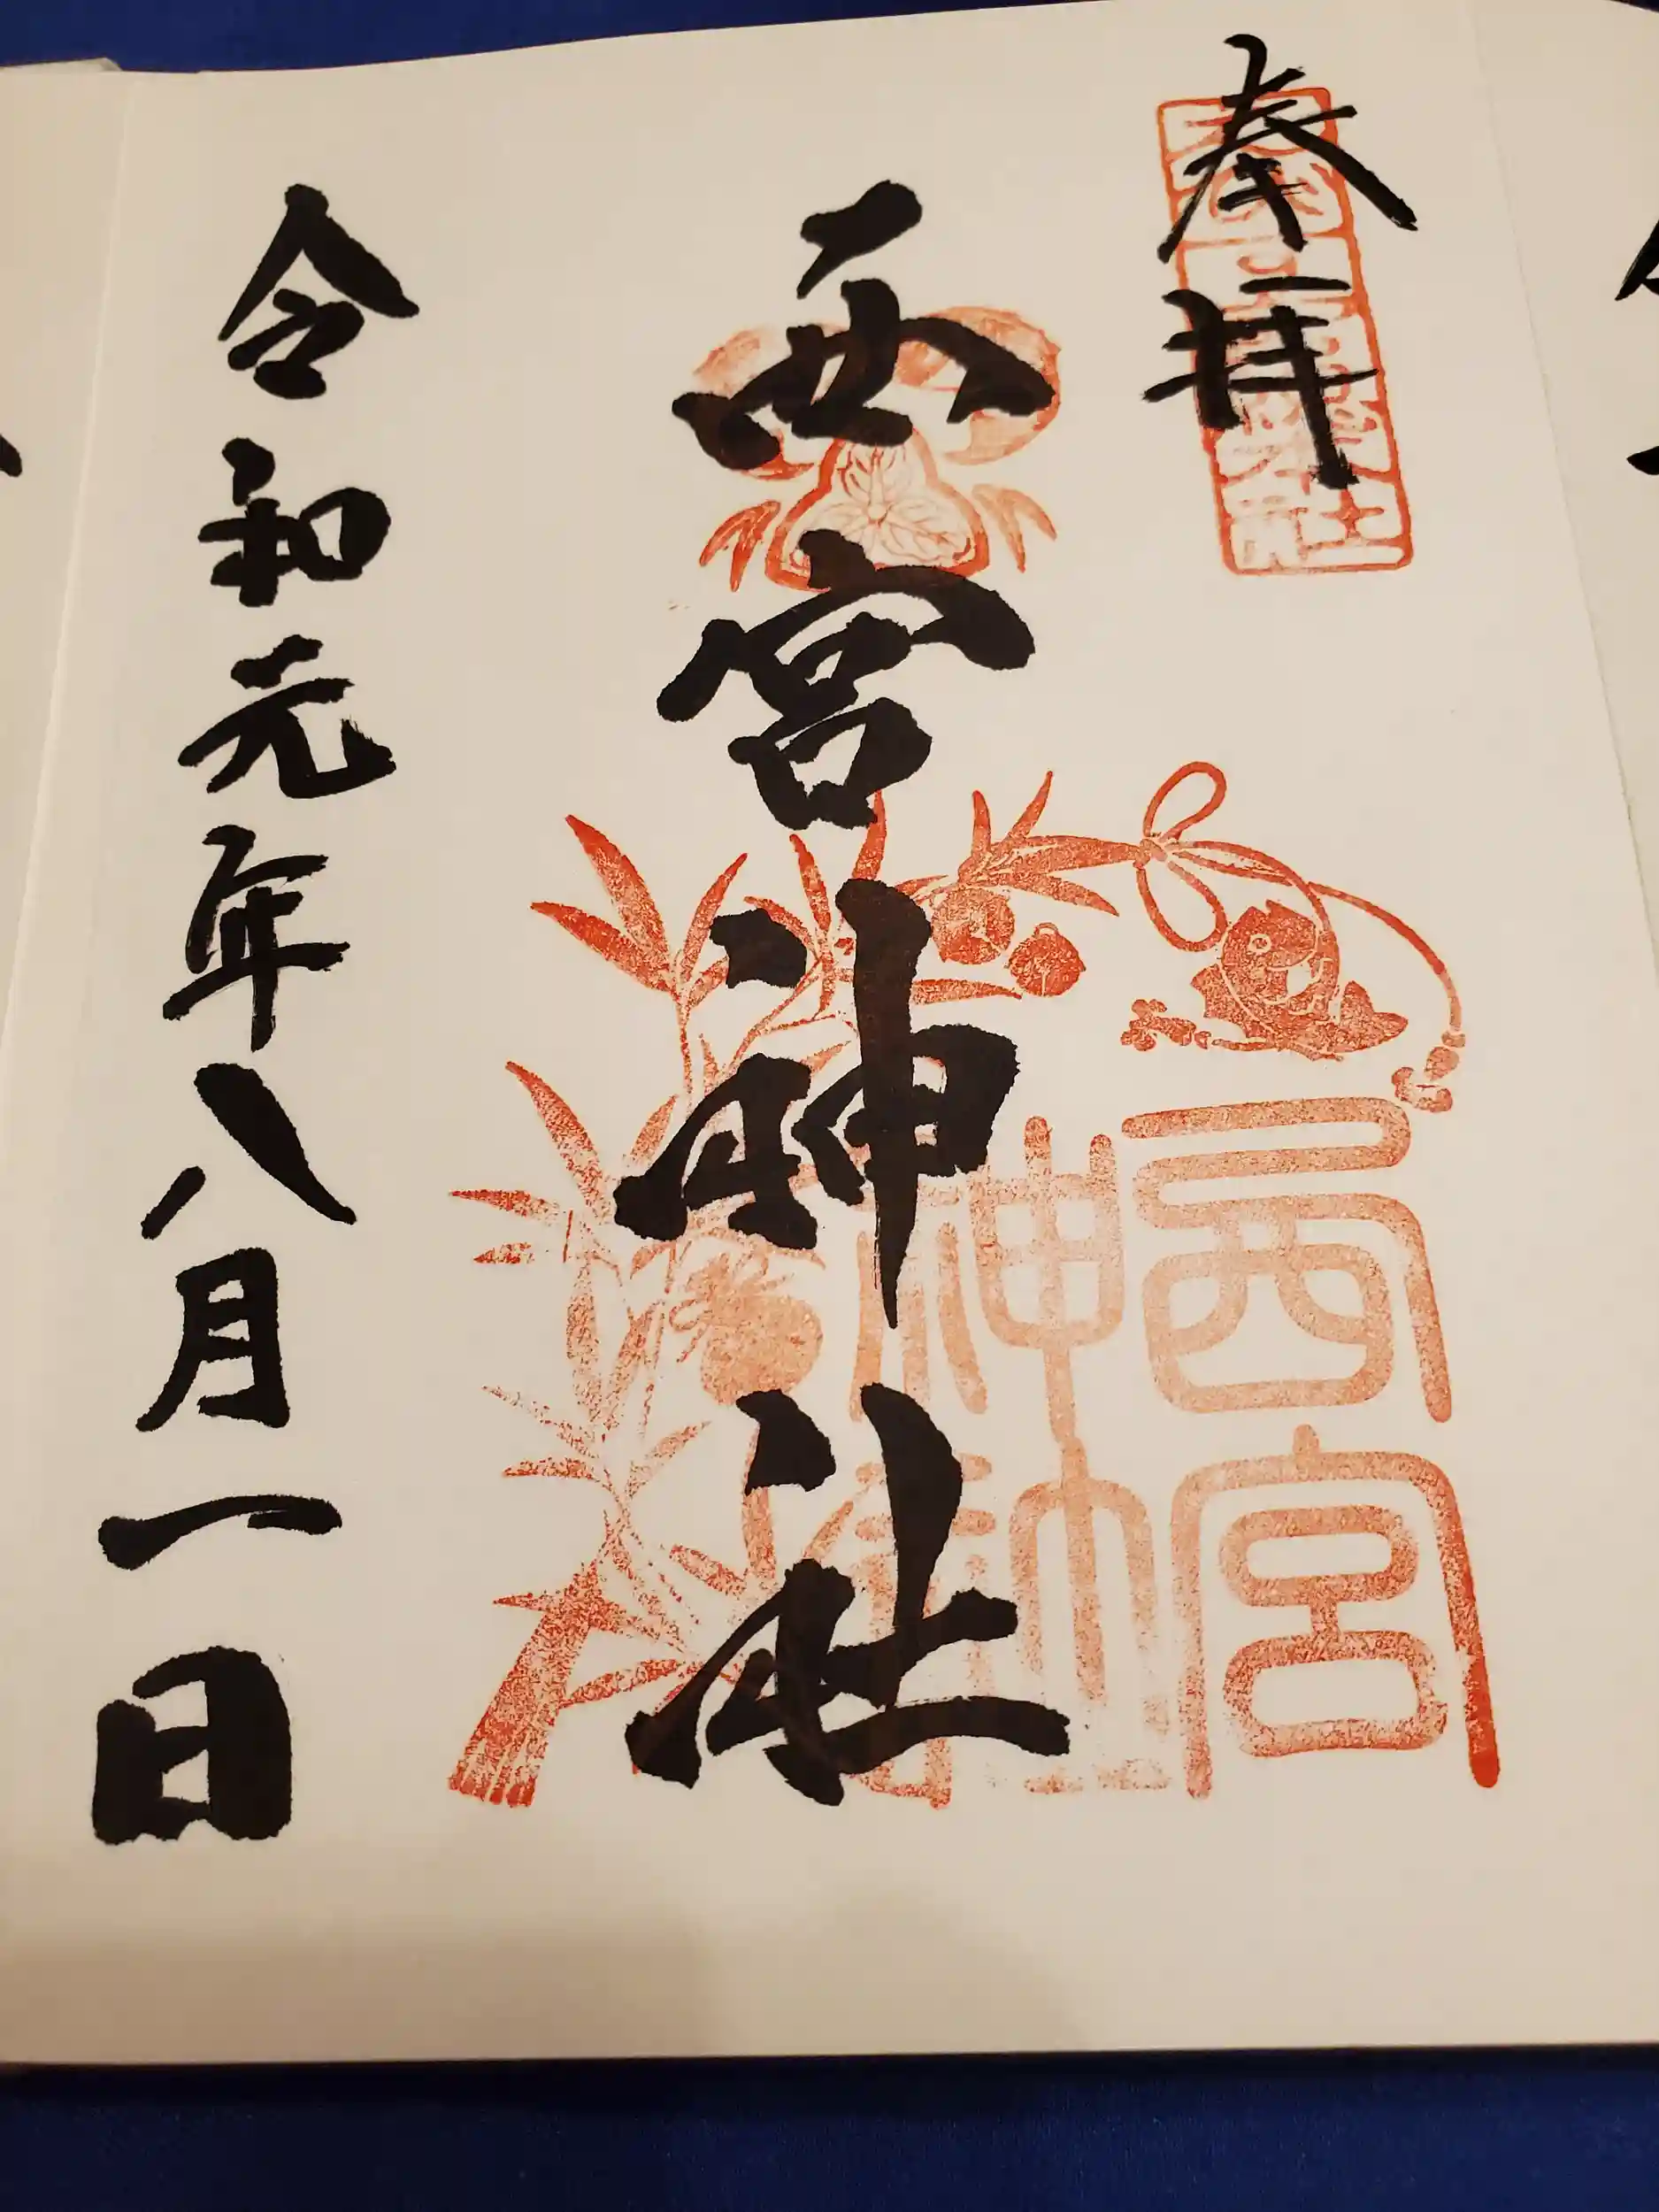 奉拝
西宮神社
西宮
神社
令和元年八月一日